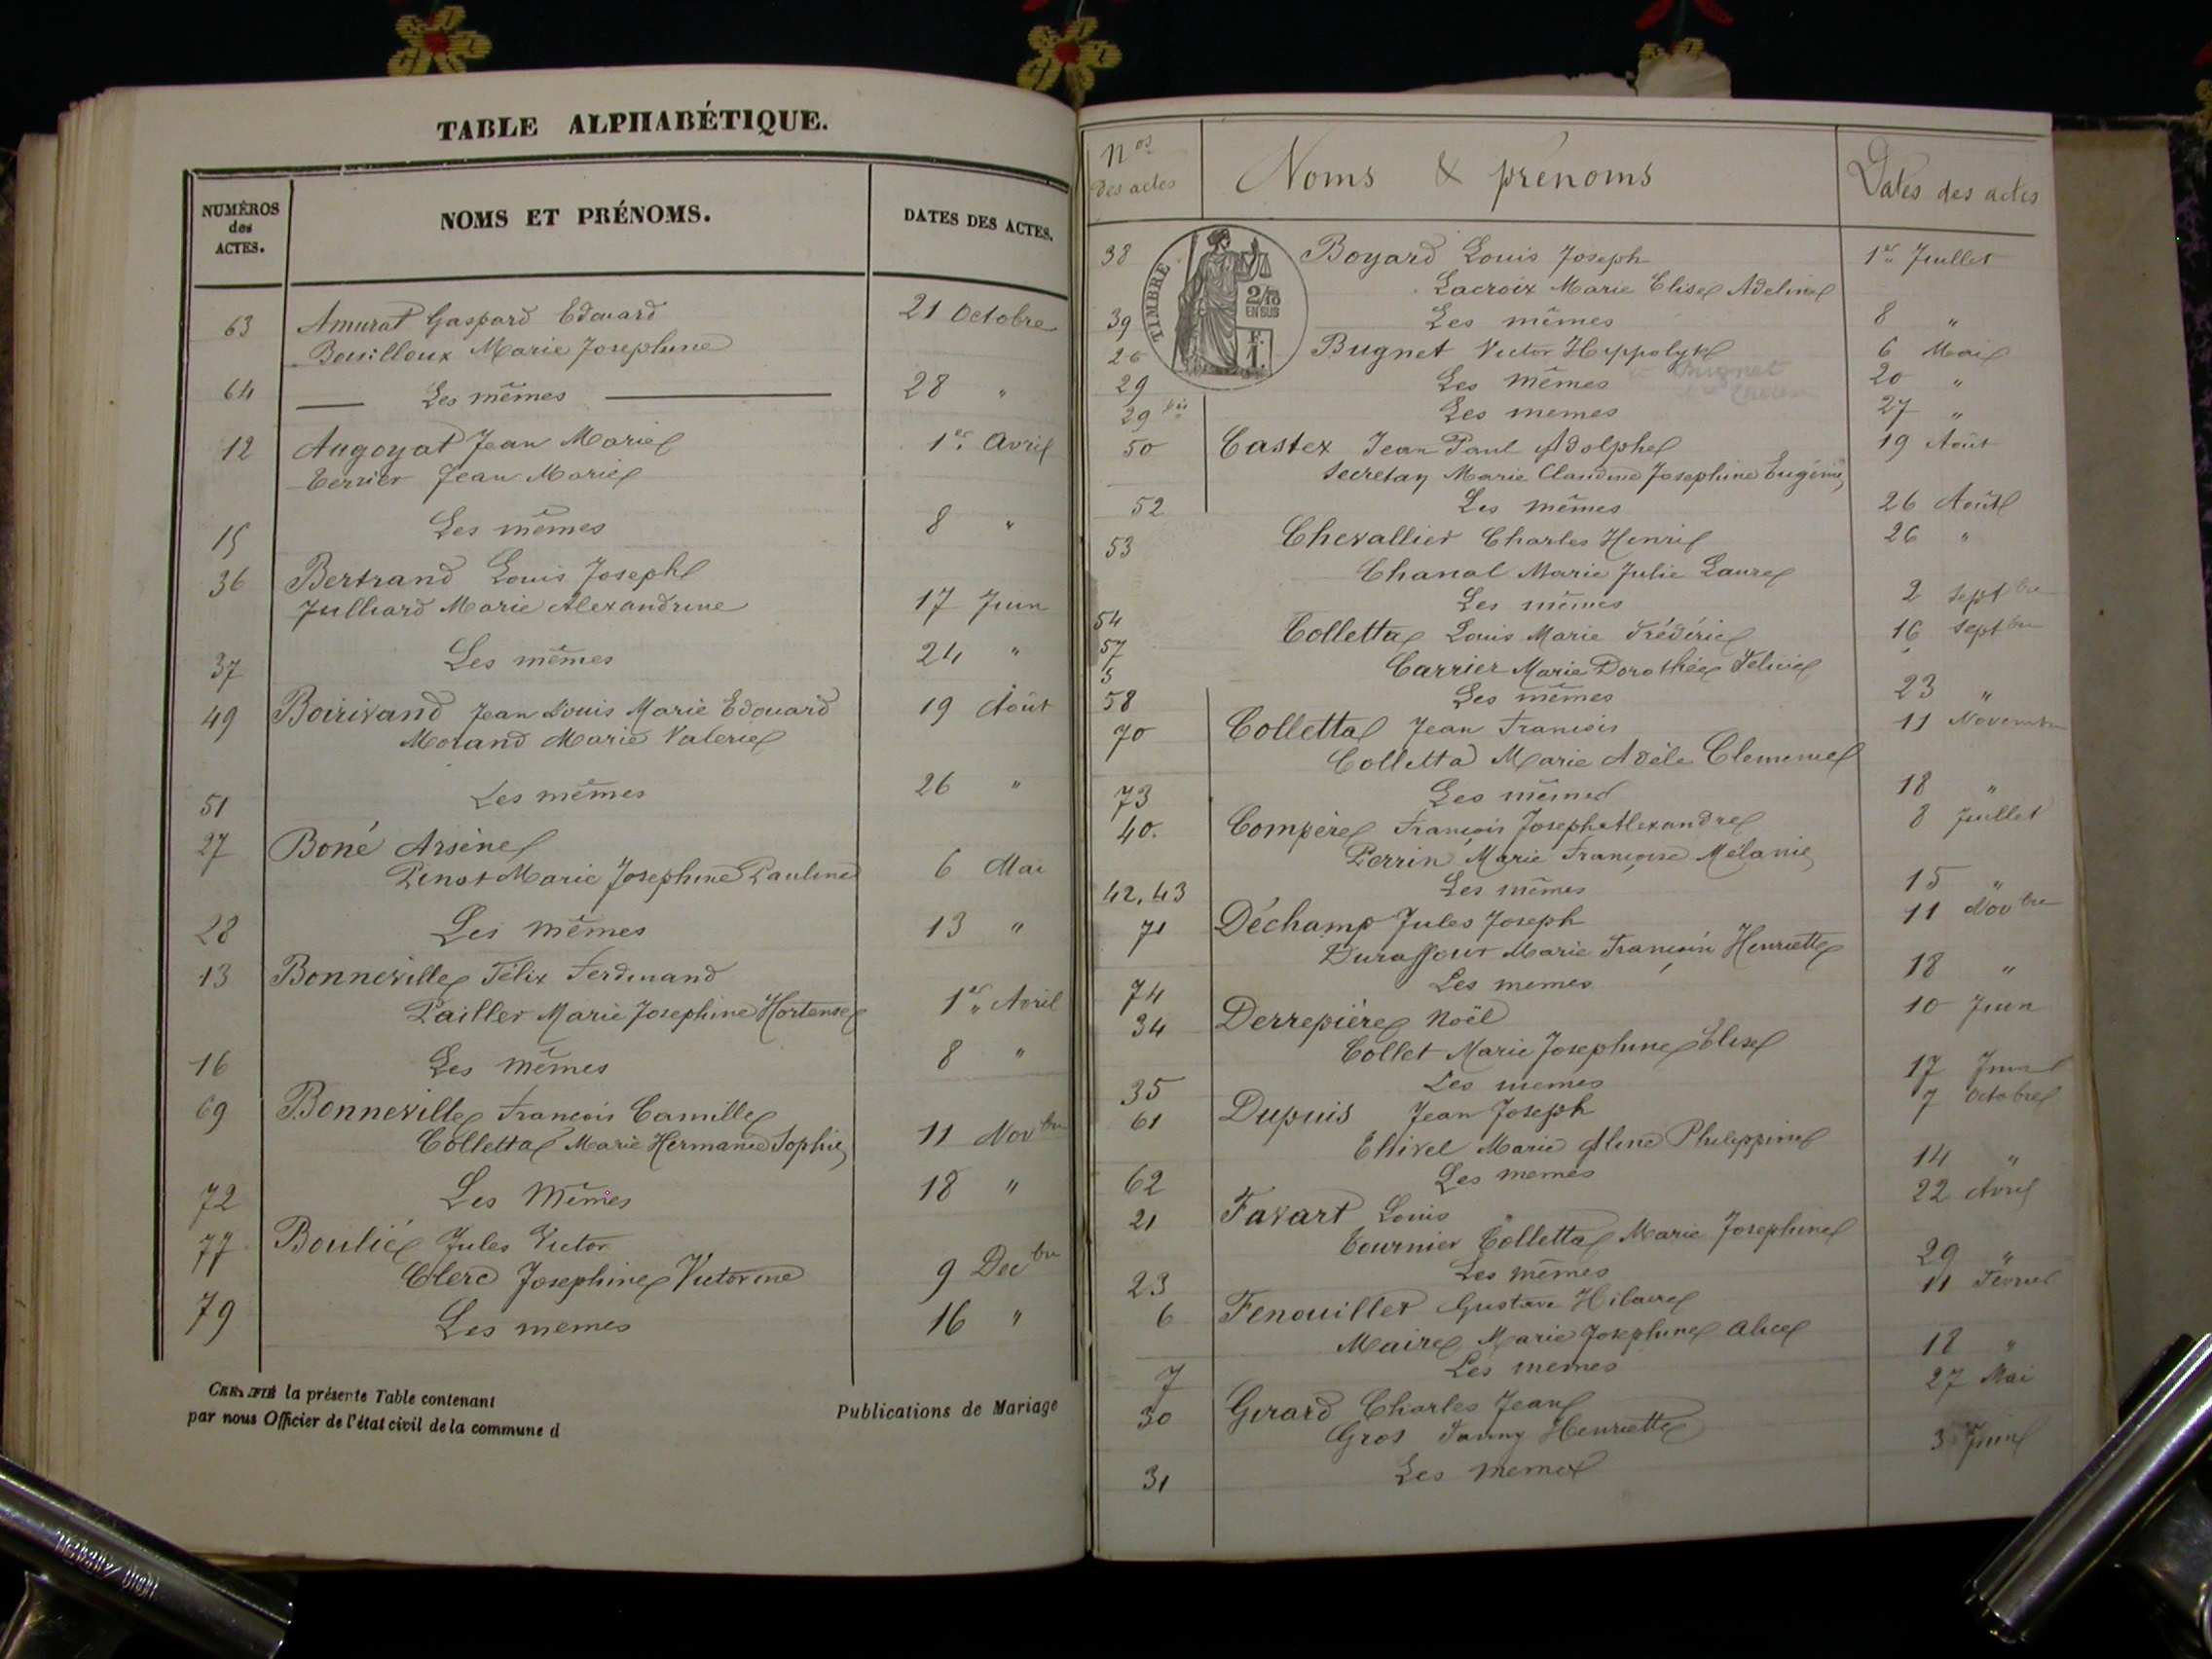 TABLE ALPHABÉTIQUE.
NUMÉROS des ACTES. NOMS ET PRÉNOMS. DATES DES ACTES.
63 Amurat Gaspard Edouard 21 Octobre
Bouilloux Marie Josephine
64 Les mêmes 28 "
12 Augoyat Jean Marie 1er Avril
Terrier Jean Marie
15 Les mêmes 8 "
36 Bertrand Louis Joseph
Julliard Marie Alexandrine 17 Juin
37 Les mêmes 24 "
49 Boirivand Jean Louis Marie Edouard 19 Août
Morand Marie Valerie
51 Les mêmes 26 "
27 Boné Arsène
Marie Josephine Pauline 6 Mai
28 Les mêmes 13 "
13 Bonneville Félix Ferdinand
Pailler Marie Josephine Hortense 1er Avril
16 Les mêmes 8 "
69 Bonneville François Camille
Colletta Marie Hermanie Sophie 11 Novbre
72 Les Mêmes 18 "
77 Boulié Jules Victor
Clerc Josephine Victorine 9 Decbre
79 Les memes 16 "
la présente Table contenant Publications de Mariage
par nous Officier de l'état civil de la commune d
Nos des actes Noms & prénoms Dates des actes
TIMBRE
2/10
EN SUS
F.
1.
38 Boyard Louis Joseph 1er Juillet
Lacroix Marie Elise Adeline
39 Les mêmes 8 "
26 Bugnet Victor Hyppolyte 6 Mai
29 Les mêmes 20 "
29 bis Les memes 27 "
50 Castex Jean Paul Adolphe 19 Août
Secretan Marie Claudine Josephine Eugénie
52 Les mêmes 26 Août
53 Chevallier Charles Henri 26 "
Chanal Marie Julie Laure
54 Les mêmes 2 Septbre
57 Colletta Louis Marie Frédéric 16 Septbre
5 Carrier Marie Dorothée Felicie
58 Les mêmes 23 "
70 Colletta Jean François 11 Novembre
Colletta Marie Adèle Clemence
73 Les mêmes 18 "
40. Compère François Joseph Alexandre 8 Juillet
Perrin Marie Françoise Mélanie
42, 43 Les mêmes 15 "
71 Déchamp Jules Joseph 11 Novbre
Duraffour Marie Henriette
74 Les memes 18 "
34 Derrepière Noël 10 Juin
Collet Marie Josephine Elise
35 Les memes 17 Juin
61 Dupuis Jean Joseph 7 Octobre
Ethivel Marie Aline Philippine
62 Les memes 14 "
21 Favart Louis 22 Avril
Tournier Colletta Marie Josephine
23 Les mêmes 29 "
6 Fenouillet Gustave Hilaire 11 Février
Maire Marie Josephine Alice
7 Les memes 18 "
30 Girard Charles Jean 27 Mai
Gros Fanny Henriette
31 Les memes 3 Juin